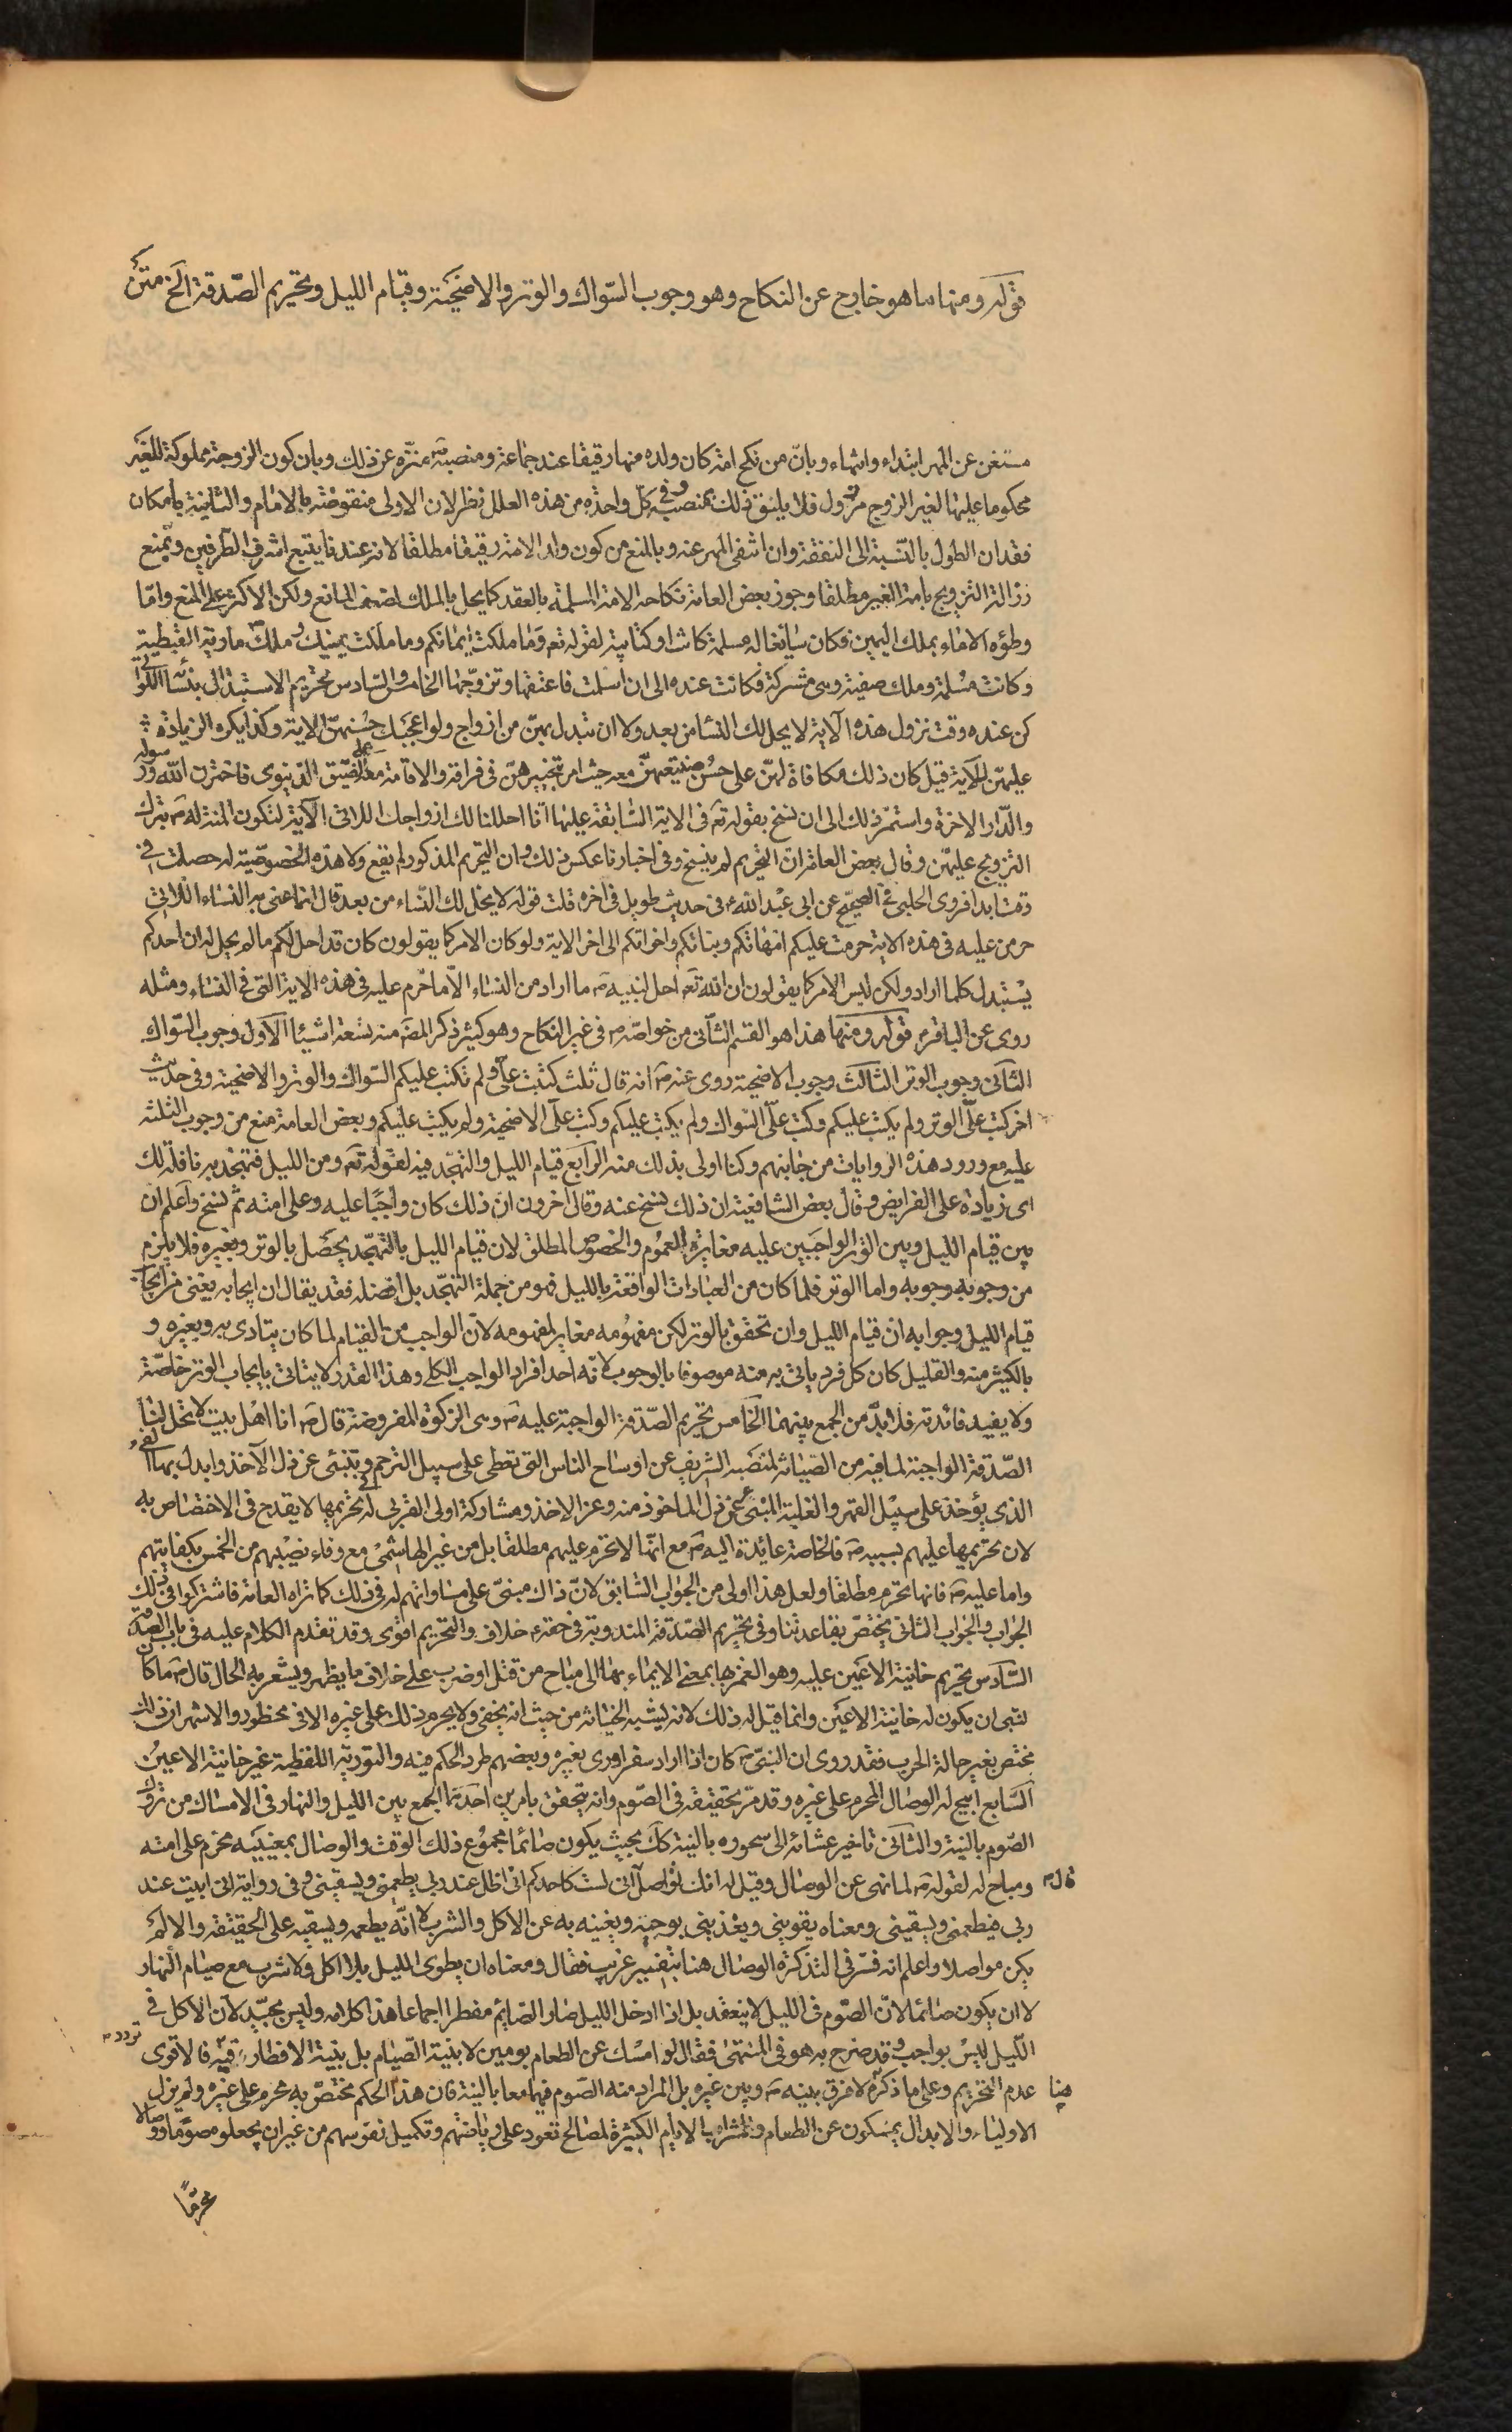 قوله ومنها ما هو خارج عن النكاح وهو وجوب السّواك والوتر والاضحيّة وقيام الليل وتحريم الصّدقة الخ متن
مستغن عن المهر ابتداء وانتهاء وبانّ من نكح امة كان ولده منها رقيقا عند جماعة ومنصبه ص منزّه عن ذلك وبان كون الزوجة مملوكة للغير
محكوما عليها لغير الزوج مرذول فلا يليق ذلك بمنصبه وفى كلّ واحدة من هذه العلل نظر لان الاولى منقوضة بالاماء والثانية بامكان
فقدان الطول بالنّسبة الى النفقة وان انتفى المهر عنه وبالمنع من كون ولد الامة رقيقا مطلقا لانه عندنا يتبع اشرف الطّرفين وتمنع
رزالة التزويج بامة الغير مطلقا وجوز بعض العامة نكاحه الامة المسلمة بالعقد كما يحل بالملك لضعف المانع ولكن الاكثر على المنع وامّا
وطؤه الاماء بملك اليمين فكان سايغا له مسلمة كانت او كتابية لقوله تع وما ملكت ايمانكم وما ملكت يمينك وملك ص مارية القبطية
وكانت مسلمة وملك صفية وهى مشركة فكانت عنده الى ان اسلمت فاعتقها وتزوّجها الخامس والسّادس تحريم الاستبدال بنسائه اللواتى
كن عنده وقت نزول هذه الآية لا يحل لك النسا من بعد ولا ان تبدل بهنّ من ازواج ولو اعجبك حسنهنّ الاية وكذا يكره الزيادة
عليهنّ للآية قيل كان ذلك مكافاة لهنّ على حسن صنيعهنّ معه حيث امر بتخييرهنّ فى فراقه والاقامة معه على الضّيق الدّنيوى فاخترن الله ورسوله
والدّار الاخرة واستمرّ ذلك الى ان نسخ بقوله تع فى الاية السّابقة عليها انّا احللنا لك ازواجك اللاتى الآية لتكون المنّة له ص بترك
التزويج عليهنّ وقال بعض العامة ان التحريم لم ينسخ وفى اخبارنا عكس ذلك وان التحريم المذكور لم يقع ولا هذه الخصوصيّة له حصلت فى
وقت ابدا فروى الحلبى فى الصحيح عن ابى عبد الله ع فى حديث طويل فى اخره قلت قوله لا يحل لك النّساء من بعد قال انما عنى به النساء اللاتى
حرمن عليه فى هذه الاية حرمت عليكم امّهاتكم وبناتكم واخواتكم الى اخر الاية ولو كان الامر كما يقولون كان قد احل لكم ما لم يحل له ان احدكم
يستبدل كلما اراد ولكن ليس الامر كما يقولون ان الله تع احل لنبيه ص ما اراد من النساء الّا ما حرّم عليه فى هذه الاية التى فى النساء ومثله
روى عن الباقر ع قوله ومنها هذا هو القسم الثّانى من خواصّه ص فى غير النكاح وهو كثير ذكر المصّ منه تسعة اشيئا الاوّل وجوب السّواك
الثانى وجوب الوتر الثالث وجوب الاضحية روى عنه ص انه قال ثلث كتبت علىّ ولم تكتب عليكم السّواك والوتر والاضحية وفى حديث
اخر كتب علىّ الوتر ولم يكتب عليكم وكتب علىّ السّواك ولم يكتب عليكم وكتب علىّ الاضحية ولم يكتب عليكم وبعض العامة منع من وجوب الثلثة
عليه مع ورود هذه الروايات من جانبهم وكنا اولى بذلك منه الرابع قيام الليل والتهجّد فيه لقوله تع ومن الليل فتهجّد به نافلة لك
اى زيادة على الفرايض وقال بعض الشافعية ان ذلك نسخ عنه وقال اخرون ان ذلك كان واجبًا عليه وعلى امته ثم نسخ واعلم ان
بين قيام الليل وبين الوتر الواجبين عليه مغايرة العموم والخصوص المطلق لان قيام الليل بالتهجّد يحصل بالوتر وبغيره فلا يلزم
من وجوبه وجوبه واما الوتر فلما كان من العبادات الواقعة بالليل فهو من جملة التهجّد بل افضله فقد يقال ان ايجابه يغنى من ايجاب
قيام الليل وجوابه ان قيام الليل وان تحقق بالوتر لكن مفهومه مغاير لمفهومه لانّ الواجب من القيام لما كان يتادى به وبغيره و
بالكثير منه والقليل كان كل فرد ياتى به منه موصوفا بالوجوب لانّه احد افراد الواجب الكلى وهذا القدر لا يتاتى بايجاب الوتر خاصّة
ولا يفيد فائدته فلا بدّ من الجمع بينهما الخامس تحريم الصّدقة الواجبة عليه ص وهى الزكوة المفروضة قال ص انا اهل بيت لا تحل لنا
الصّدقة الواجبة لما فيه من الصّيانة لمنصبه الشريف عن اوساخ الناس التى تعطى على سبيل الترحم وتنبئ عن ذل الآخذ وابدل بها الفئ
الذى يؤخذ على سبيل القهر والغلبة المنبئ عن ذل الماخوذ منه وعز الاخذ ومشاركة اولى القربى له فى تحريمها لا يقدح فى الاختصاص به
لان تحريمها عليهم بسببه ص فالخاصة عائدة اليه ص مع انها لا تحرم عليهم مطلقا بل من غير الهاشمى مع وفاء نصيبهم من الخمس بكفايتهم
واما عليه ص فانها تحرم مطلقا ولعل هذا اولى من الجواب السّابق لانّ ذاك مبنىّ على مساواتهم له فى ذلك كما تراه العامة فاشتركوا فى ذلك
الجواب والجواب الثانى يختصّ بقاعدتنا وفى تحريم الصّدقة المندوبة فى حقه ع خلاف والتحريم اقوى وقد تقدم الكلام عليه فى باب الصدقة
السّادس تحريم خائنة الاعين عليه وهو الغمز بها بمعنى الايماء بها الى مباح من قتل او ضرب على خلاف ما يظهر ويشعر به الحال قال ص ما كان
لنبى ان يكون له خائنة الاعين وانما قيل له ذلك لانه يشبه الخيانة من حيث انه يخفى ولا يحرم ذلك على غيره الا فى محظور والاشهر ان ذلك
مختص بغير حالة الحرب فقد روى ان النبىّ ص كان اذا اراد سفرا ورى بغيره وبعضهم طرد الحكم فيه والتورية اللفظية غير خائنة الاعين
السّابع ابيح له الوصال المحرم على غيره وقد مرّ تحقيقه فى الصّوم وانه يتحقق بامرين احدهما الجمع بين الليل والنهار فى الامساك من تروك
الصّوم بالنية والثانى تاخير عشائه الى سحوره بالنية كك بحيث يكون صائما مجموع ذلك الوقت والوصال بمعنييه محرم على امته
ومباح له لقوله ص لما نهى عن الوصال وقيل له انك تواصل انى لست كاحدكم انى اظل عند ربى يطعمنى ويسقينى وفى رواية انى ابيت عند
قال ص
ربى فيطعمنى ويسقينى ومعناه يقوينى ويغذينى بوحيه ويغنيه به عن الاكل والشرب لا انّه يطعمه ويسقيه على الحقيقة والا لم
يكن مواصلا واعلم انه فسّر فى التذكرة الوصال هنا بتفسير غريب فقال ومعناه ان يطوى الليل بلا اكل ولا شرب مع صيام النّهار
لا ان يكون صائما لانّ الصّوم فى الليل لا ينعقد بل اذا دخل الليل صار الصّايم مفطرا اجماعا هذا كلامه وليس بجيّد لان الاكل فى
الليل ليس بواجب وقد صرح به هو فى المنتهى فقال لو امسك عن الطعام يومين لا بنية الصّيام بل بنية الافطار ففيه تردد فالاقوى
عدم التحريم وعلى ما ذكره هنا لا فرق بينه ص وبين غيره بل المراد منه الصّوم فيهما معا بالنية فان هذا الحكم مختصّ به محرم على غيره ولم يزل
الاولياء والابدال يمسكون عن الطعام والشراب الايام الكثيرة لمصالح تعود على رياضتهم وتكميل نفوسهم من غير ان يجعلوه صومًا ووصالا
محرمًا